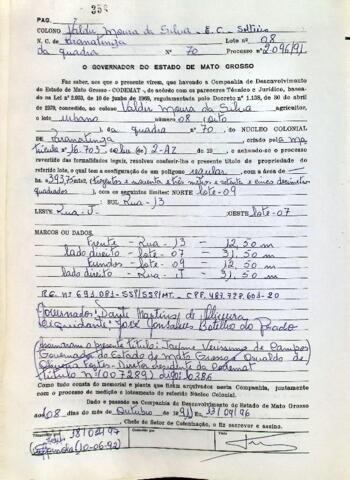 358
PAG.
COLONO Valdir Moura da Silva - E.C. Solteiro
N. C. de Paranatinga Lote nº 08
da quadra Nº 70 Processo nº 2.096/91
O GOVERNADOR DO ESTADO DE MATO GROSSO
Faz saber, aos que o presente virem, que havendo a Companhia de Desenvolvimento
do Estado de Mato Grosso - CODEMAT -, de acordo com os pareceres Técnico e Jurídico, basea-
da na Lei nº 2.903, de 10 de junho de 1969, regulamentada pelo Decreto nº 1.138, de 30 de abril
de 1970, concedido, ao colono Valdir Moura da Silva agricultor,
o lote urbano número 08 (oito
), da quadra nº 70, do NÚCLEO COLONIAL
DE Paranatinga, criado pela ma
trícula nº 16.705 de 19 , e achando-se o processo
revestido das formalidades legais, resolveu conferir-lhe o presente título de propriedade do
referido lote, o qual tem a configuração de um polígono regular, com a área de
393,75 mts² (trezentos e noventa e três metros e setenta e cinco decímetros
quadrados), com os seguintes limites: NORTE lote-09
SUL Rua-13
LESTE Rua-J OESTE lote-07
MARCOS OU DADOS.
frente - Rua-13 - 12,50 m
lado direito - lote-07 - 31,50 m
fundos - lote-09 - 12,50 m
lado direito - Rua-J - 31,50 m
RG. nº 691.081-SSP/SSP/MT. CPF. 483.728.601-20
Governador: Dante Martins de Oliveira
liquidante: José Gonsalves Botelho do Prado
assinaram o presente título: Jayme Veríssimo de Campos
Governador do Estado de Mato Grosso e Oswaldo de
Oliveira Fortes - Diretor Presidente da Codemat
título nº (007289)
Como tudo consta do memorial e planta que ficam arquivados nesta Companhia, juntamente
com o processo de medição e loteamento do referido Núcleo Colonial.
Dado e passado na Companhia de Desenvolvimento do Estado de Mato Grosso
aos 08 dias do mês de Outubro de 1991 13/09/96
Chefe do Setor de Colonização, o fiz escrever e assino.
Transcrito em 18/02/97
Conferido por
Visto
(10-06-92)